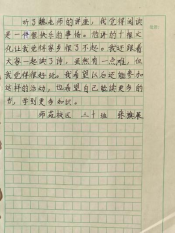 听了魏老师的讲座，我觉得阅读
是一件很快乐的事情。
化让我觉得家乡很了不起。我还跟着
大家一起读了诗，虽然有一点难，但
我觉得很好玩。我希望以后还能参加
这样的活动，也希望自己能读更多的
书，学到更多知识。
校区 三十班 张